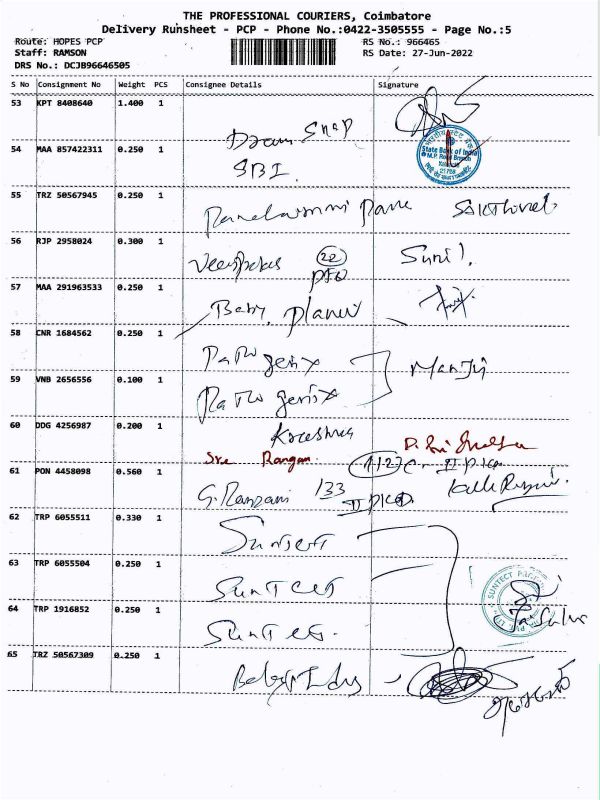 THE PROFESSIONAL COURIERS, Coimbatore
Delivery Runsheet - PCP - Phone No.:0422-3505555 - Page No.:5
Route: HOPES PCP RS No.: 966465
Staff: RAMSON RS Date: 27-Jun-2022
DRS No.: DCJB96646505
S No Consignment No Weight PCS Consignee Details Signature
53 KPT 8408640 1.400 1
Dream Snap
54 MAA 857422311 0.250 1 SBI
State Bank of India
M.P. Road Branch
21788
55 TRZ 50567945 0.250 1
56 RJP 2958024 0.300 1 22 Sunil.
57 MAA 291963533 0.250 1 Baby planet
58 CNR 1684562 0.250 1 Patho genix Manju
59 VNB 2656556 0.100 1 Patho genix
60 DDG 4256987 0.200 1
Sree Rangan
61 PON 4458098 0.560 1 133
62 TRP 6055511 0.330 1 Suntect
63 TRP 6055504 0.250 1 Suntect
SUNTECT
64 TRP 1916852 0.250 1 Suntect.
65 TRZ 50567309 0.250 1